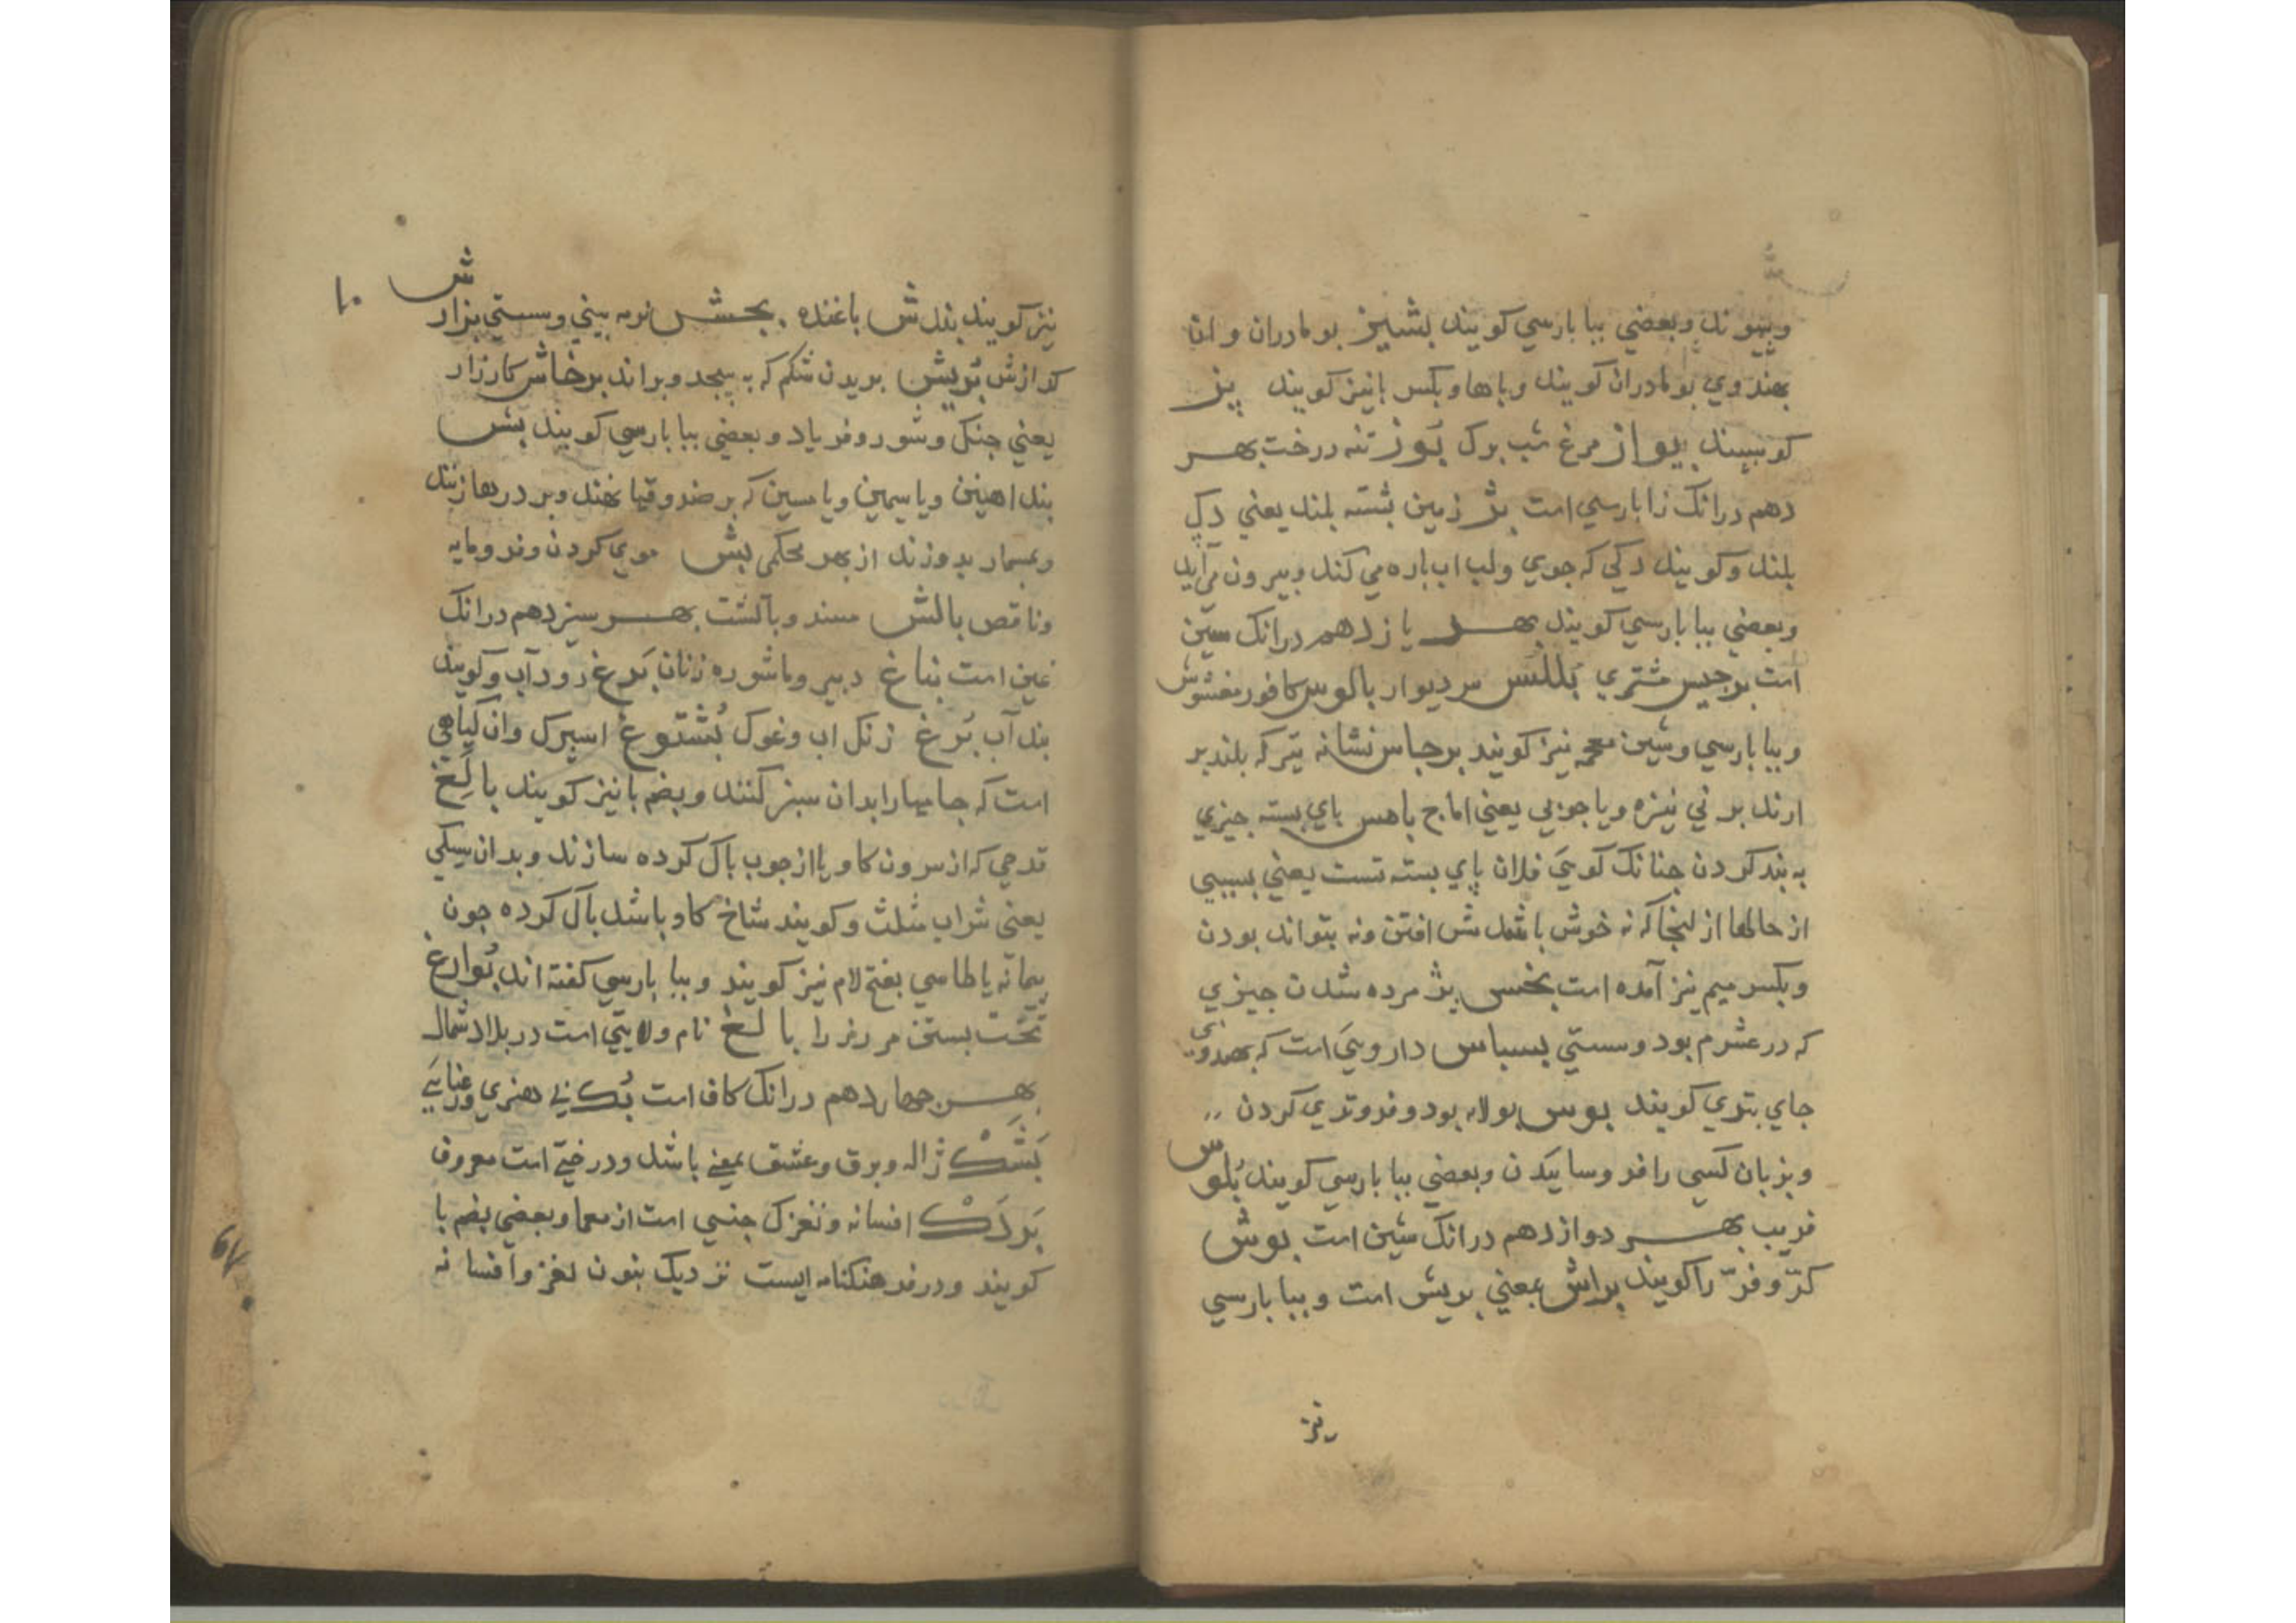 وپیوند وبعضي ببا بارسي كويند بشيز بومادران و ان
بهندوي بومادران كويند وباها وبكسر بانيز كويند پيز
كويند بيواز مرغ شب برك بوز تنه درخت بهر
دهم درانك زا بارسي است بژ زمين بشته بلند يعني دكي
بلند وكويند دكي كه جوي ولب اب باره مي كند وبيرون مي آيد
وبعضي ببا بارسي كويند بهر يازدهم درانك سين
است برجيس مشتري بللس سر ديوار بالوس كافور مغشوش
وببا بارسي وشين معجمه نيز كويند برجاس نشانه تير كه بلند بر
ارند بر ني نيزه ويا جوبي يعني اماج باهس باي بسته جيزي
به بند كردن جنانك كويي فلان پاي بسته تست يعني بسببي
از حالها از اينجا كه نه خوش باشدش افتن ونه بتواند بودن
وبكسر ميم نيز آمده است بخس پژمرده شدن جيزي
كه در عشرم بود وسستي بسباس دارويي است كه بهندوي
جاي بتري كويند بوس بولاه بود وفروتري كردن
وبزبان كسي را فروسائيدن وبعضي ببا بارسي كويند بلوس
فريب بهر دوازدهم درانك شين است بوش
كرّ و فرّ را كويند براش بمعني بريش است وببا بارسي
نيز
ش
۱۰
نيز كويند بندش باغنده بخش نرمه بيني وسستي بزار
كدازش بريش بريدن شكم كه بپيجد وبراند برخاش كارزار
يعني جنك وشور وفرياد وبعضي ببا بارسي كويند بش
بند اهنين ويا سيمين ويا مسين كه بر صندوقها نهند وبر درها زنند
وبمسمار بدوزند از بهر محكمي بش موي كردن وفرومايه
وناقص بالش مسند وبالشت بهر سيزدهم درانك
غين است بناغ دبير وماشوره زنان برغ رود آب وكويند
بند آب بزغ زنك اب وغوك بشتوغ اسپرك وان كياهي
است كه جامها را بدان سبز كنند وبضم با نيز كويند بالغ
قدحي كه از سرون كاو يا از جوب باك كرده سازند وبدان سيكي
يعني شراب مثلث وكويند شاخ كاو باشد باك كرده جون
پيمانه يا طاسي بفتح لام نيز كويند وببا بارسي كفته اند بوارغ
تخت بستن مر رز را بالغ نام ولايتي است در بلاد شمال
بهر جهاردهم درانك كاف است بك بي هنري وعنايي
بشك ژاله وبرق وعشق بمعني باشد ودرختي است معروف
بردك افسانه ونغزك جنسي است از معما وبعضي بضم با
كويند ودر فرهنكنامه ايست نزديك بنون لغز وافسانه